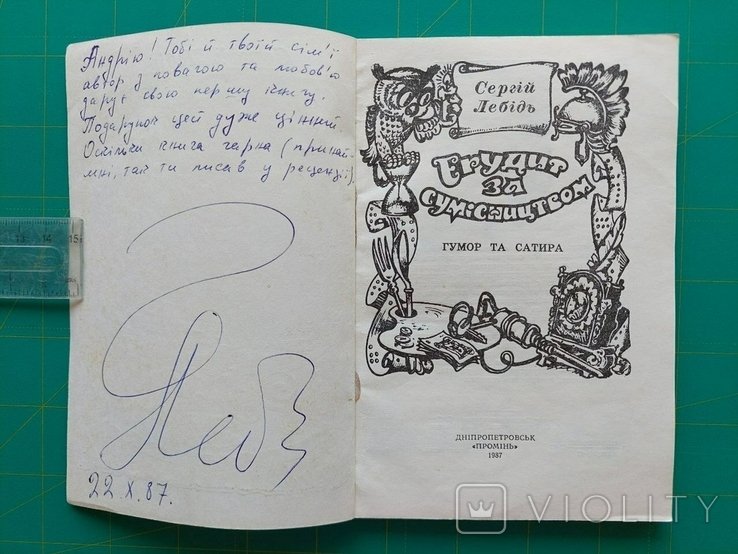 Андрію! Тобі й твоїй сім'ї
автор з повагою та любов'ю
дарує свою першу книгу.
Подарунок цей дуже цінний
Оскільки книга гарна (принай-
мні, так ти писав у рецензії).
Леб
22.X.87.
Сергій
Лебідь
Ерудит
за
сумісництвом
ГУМОР ТА САТИРА
ДНІПРОПЕТРОВСЬК
«ПРОМІНЬ»
1987
13 14 15
VIOLITY